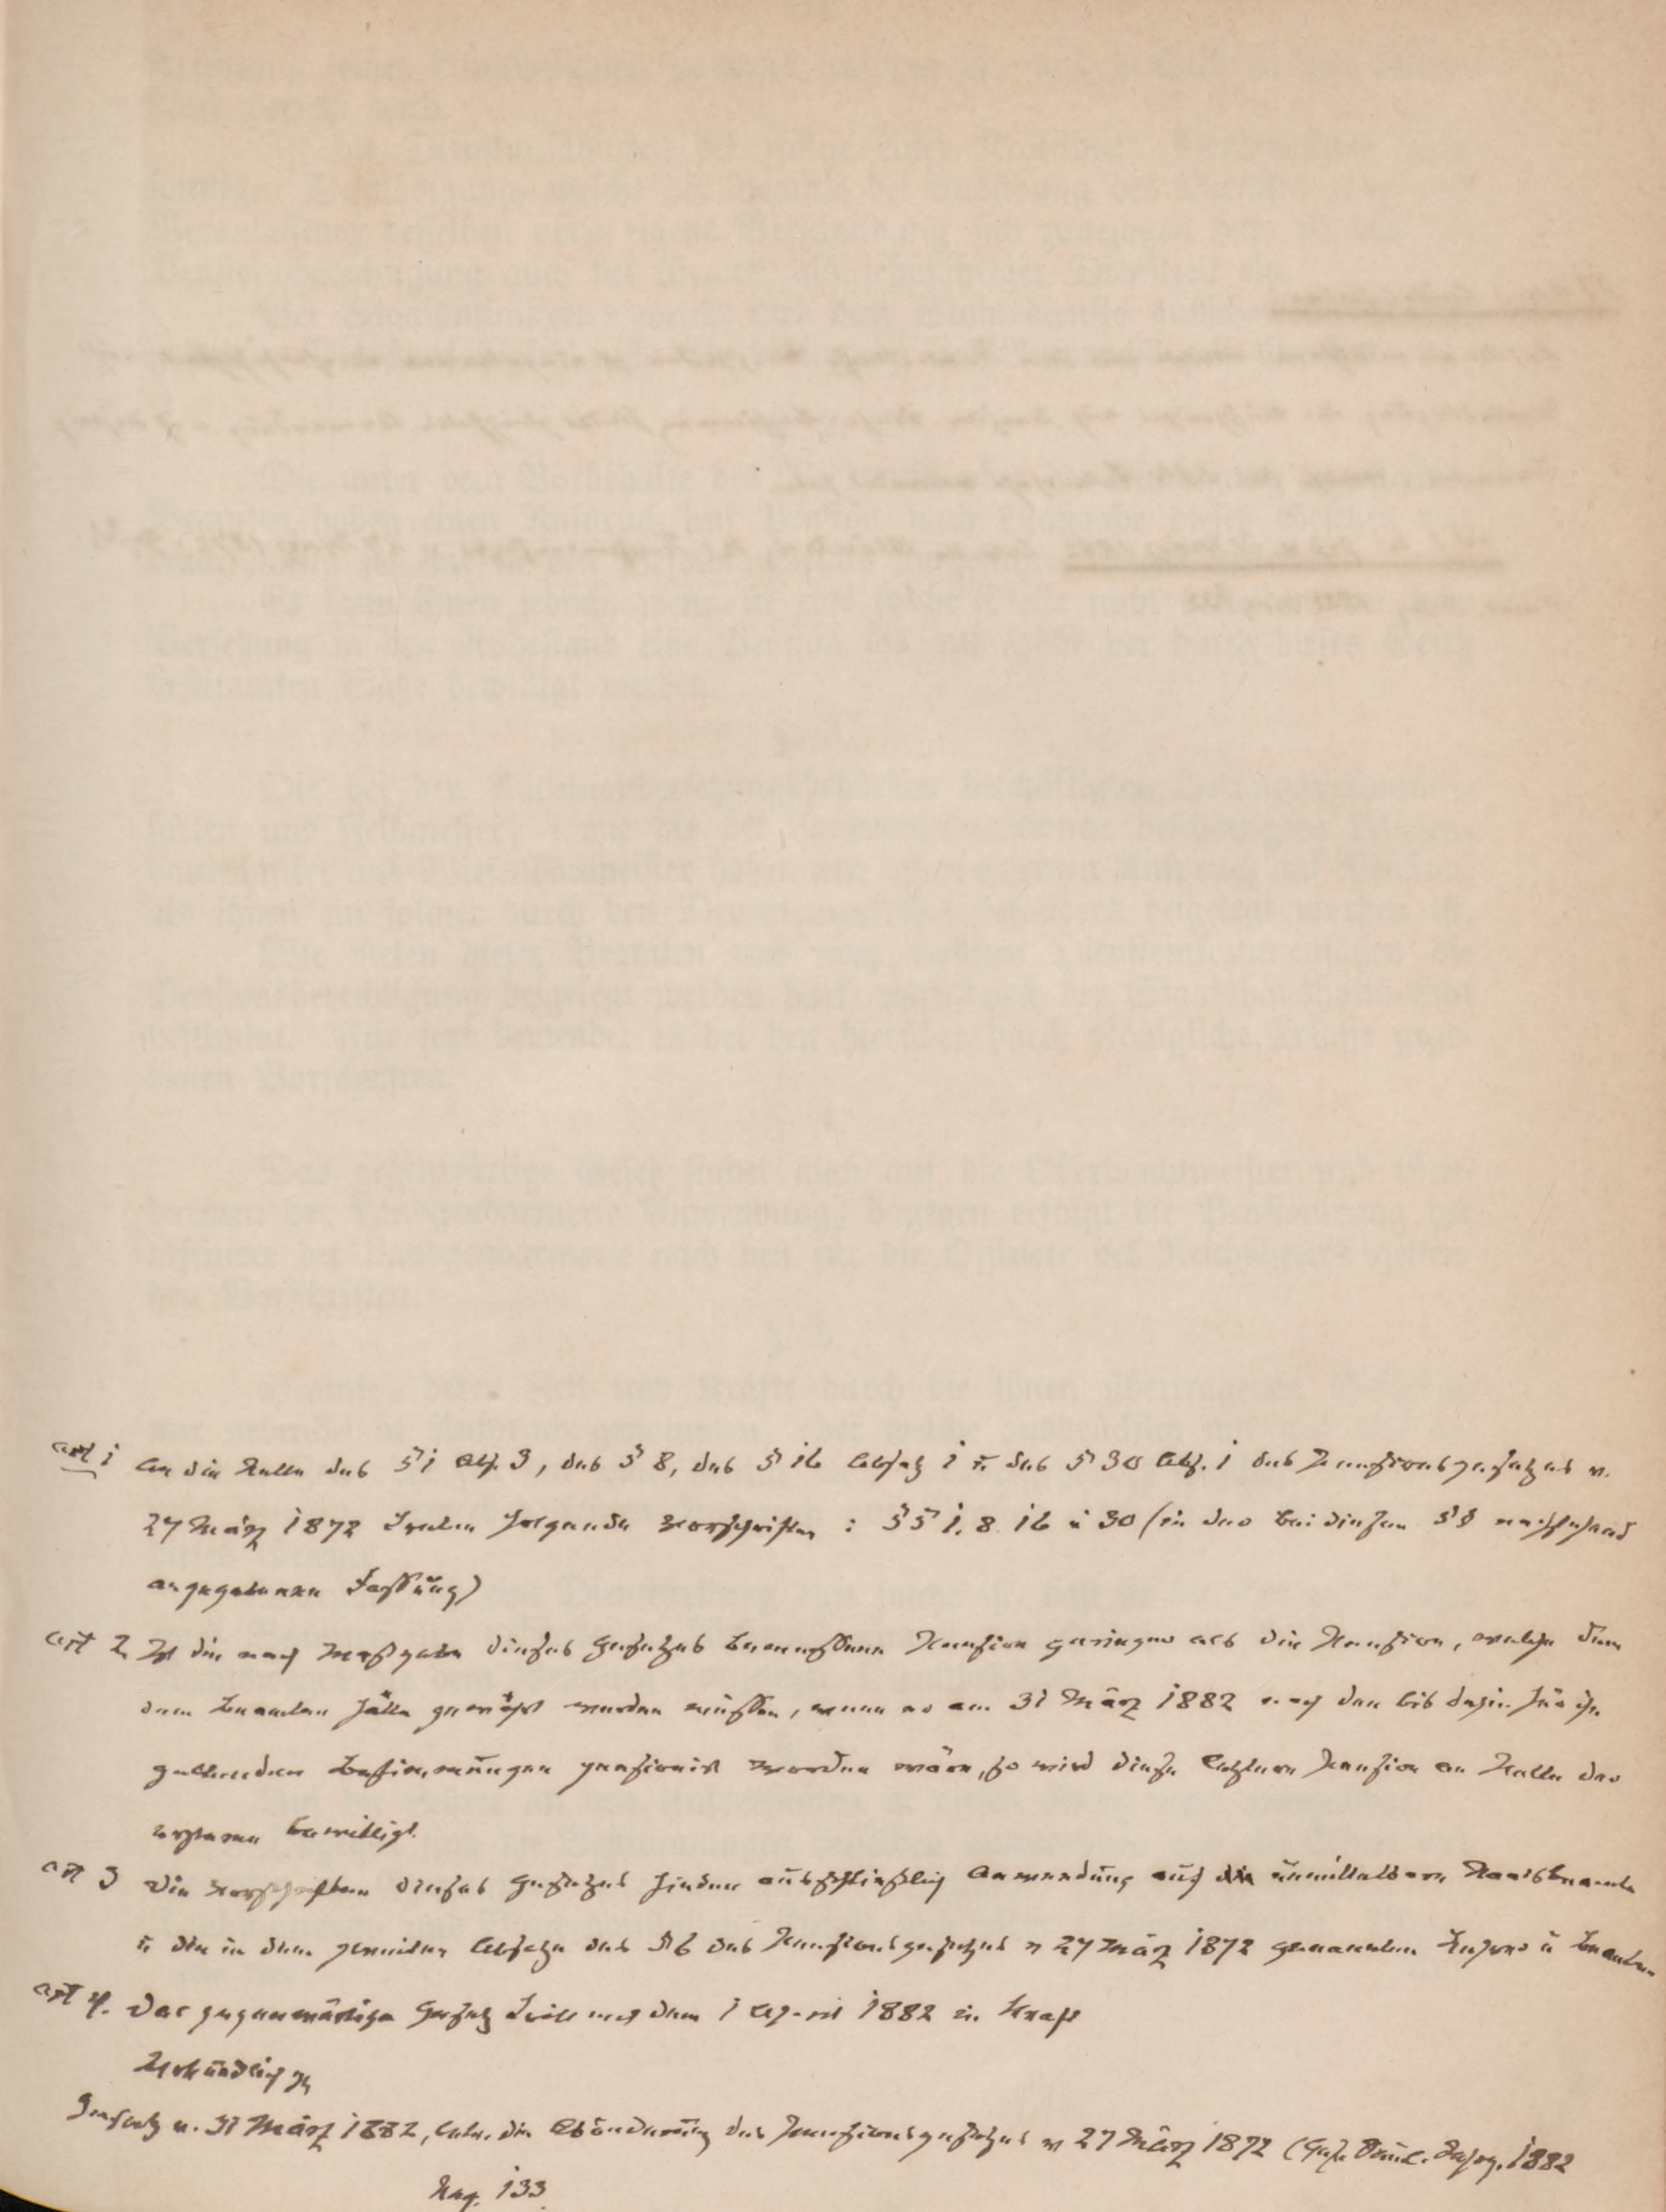 Art 1 An die Stelle des § 1 Abs. 3, des § 8, des § 16 Absatz 1 u. des § 30 Abs. 1 des Pensionsgesetzes v.
27 März 1872 treten folgende Vorschriften : §§ 1. 8. 16 u 30 (in der bei diesen §§ nachstehend
angegebenen Fassung)
Art 2 Ist die nach Maßgabe dieses Gesetzes bemessene Pension geringer als die Pension, welche
dem Beamten hätte gewährt werden müssen, wenn er am 31 März 1882 nach den bis dahin für ihn
geltenden Bestimmungen pensionirt worden wäre, so wird diese letztere Pension an Stelle der
ersteren bewilligt.
Art 3 Die Vorschriften dieses Gesetzes finden ausschließlich Anwendung auf die unmittelbaren Staatsbeamte
u. die in dem zweiten Absatze des § 6 des Pensionsgesetzes v 27 März 1872 genannten Lehrer u Beamten
Art 4. Das gegenwärtige Gesetz tritt mit dem 1 April 1882 in Kraft
Urkundlich pp
Gesetz v. 31 März 1882, betr. die Abänderung des Pensionsgesetzes v 27 März 1872 (Ges. 1882
Pag. 133.